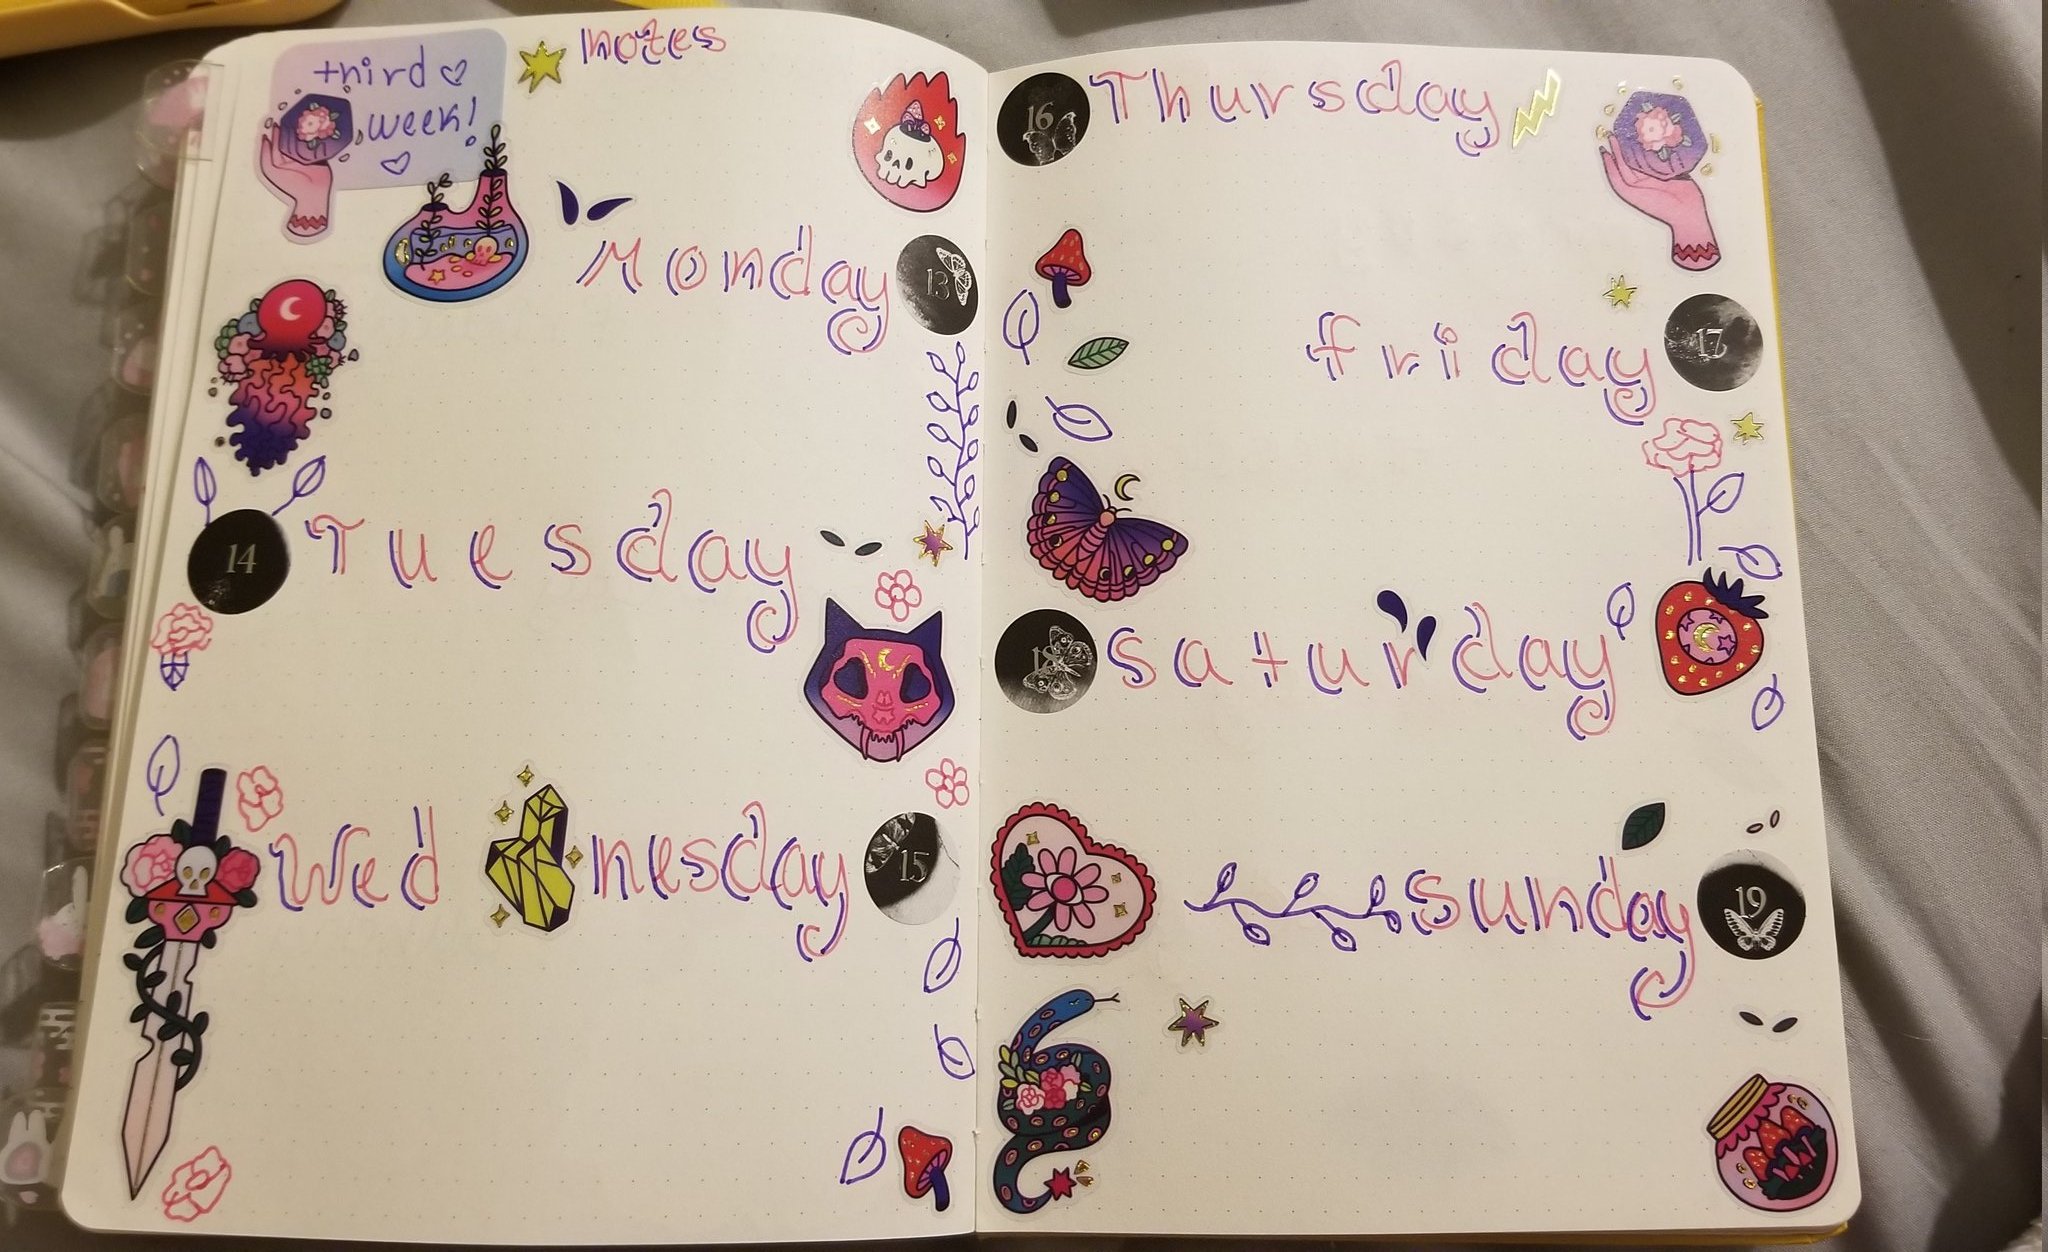 third
week!
notes
Monday 13
14 Tuesday
Wednesday 15
16 Thursday
friday 17
18 saturday
sunday 19